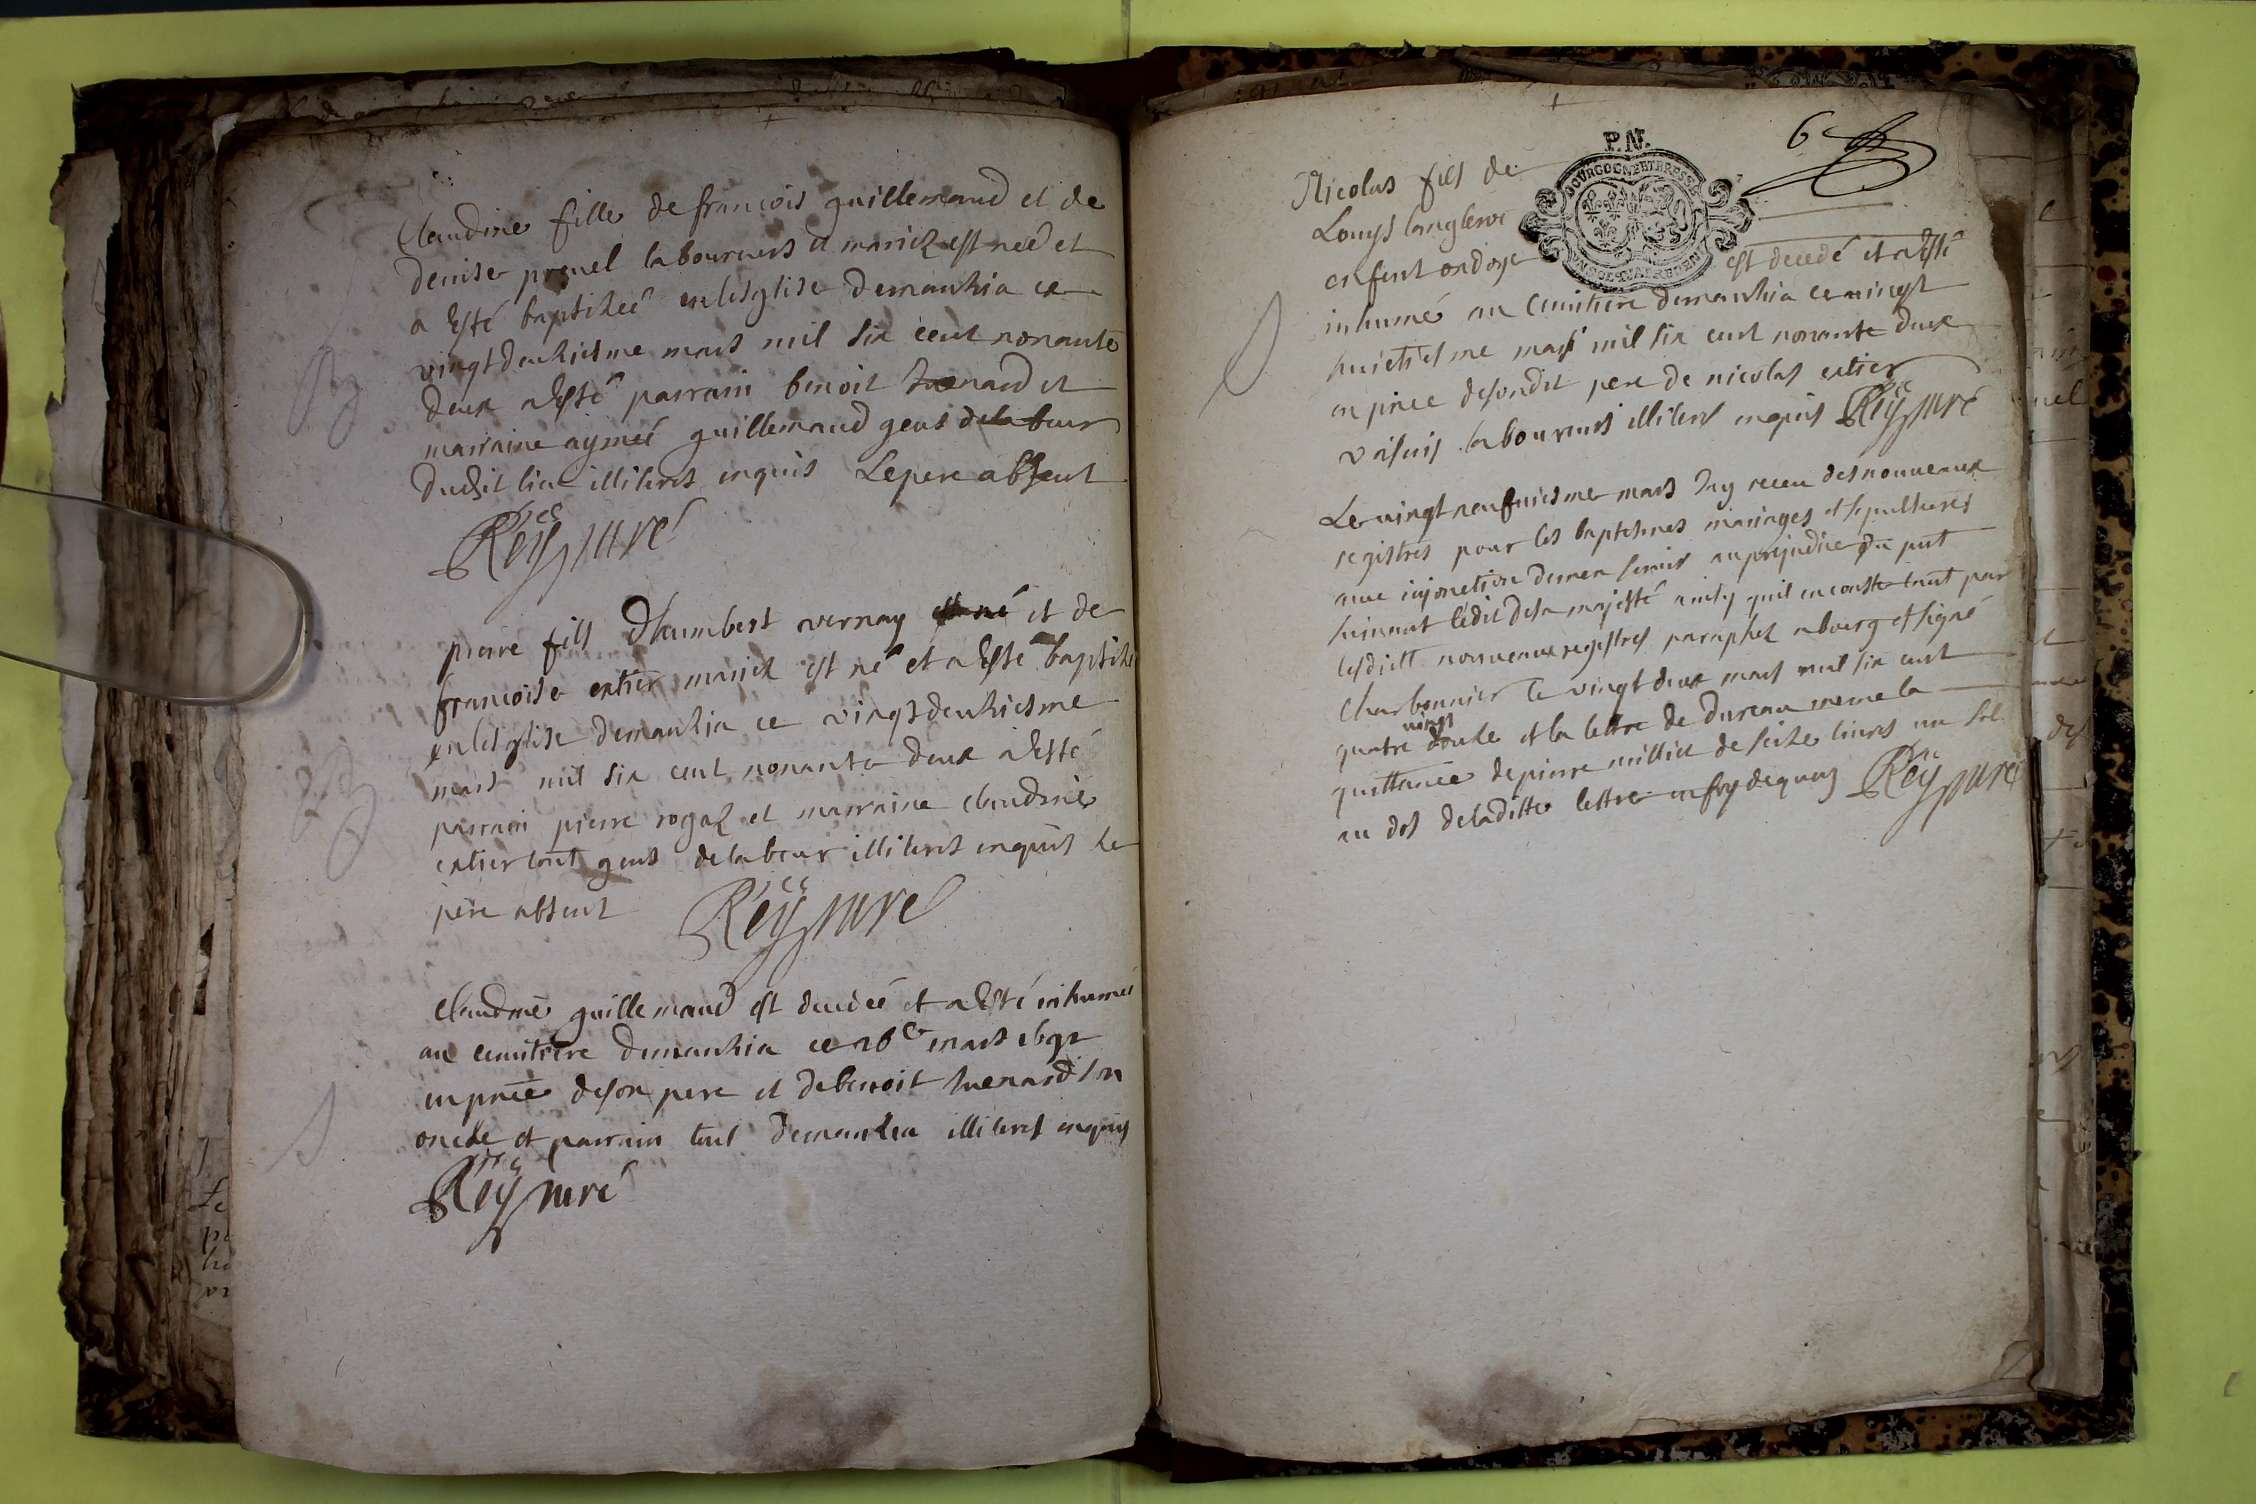 Claudine fille de francois guillemaud et de
denise prevel laboureurs et mariez est neé et
a esté baptizeé en lesglise demanzia ce
vingtdeuziesme mars mil six cent nonante
deux a esté parrain benoit et
marraine aymeé guillemaud gens de labeur
dudit lieu illiteres enquis Le pere absent
Reÿ curé
pierre fils dhumbert vernay est né et de
francoise extier mariez est né et a esté baptizé
en lesglise demanzia ce vingtdeuziesme
mars mil six cent nonante deux a esté
parrain pierre rogaz et marraine claudine
extier tout gens de labeur illiteres enquis le
pere absent Reÿ curé
Claudine guillemaud est decedeé et a esté inhumeé
au cemitiere demanzia ce 26e mars 1692
en pnce de son pere et de benoit son
oncle et parrain tout demanzia illiteres enquis
Reÿ curé
6
P.N.
BOURGOGNE ET BRESSE
Nicolas fils de
Louys
enfant ondoyé est decedé et a esté
inhumé au cemitiere demanzia ce vingt
huictiesme mars mil six cent nonante deux
en pnce de sondit pere de nicolas extier
voisins laboureurs illiteres enquis Reÿ curé
Le vingt neufviesme mars Jay receu des nouveaux
registres pour les baptesmes mariages et sepultures
avec injonction de men servir au prejudice du pnt
suivant lédit de sa majesté ainsy quil en conste tant par
lesdicts nouveaux registres paraphez a bourg et signé
Charbonnier le vingt deux mars mil six cent
quatre vingt douze et la lettre de dureau meme la
quittance de pierre millet de seize livres un sol
au dos de laditte lettre en foy de quoy Reÿ curé